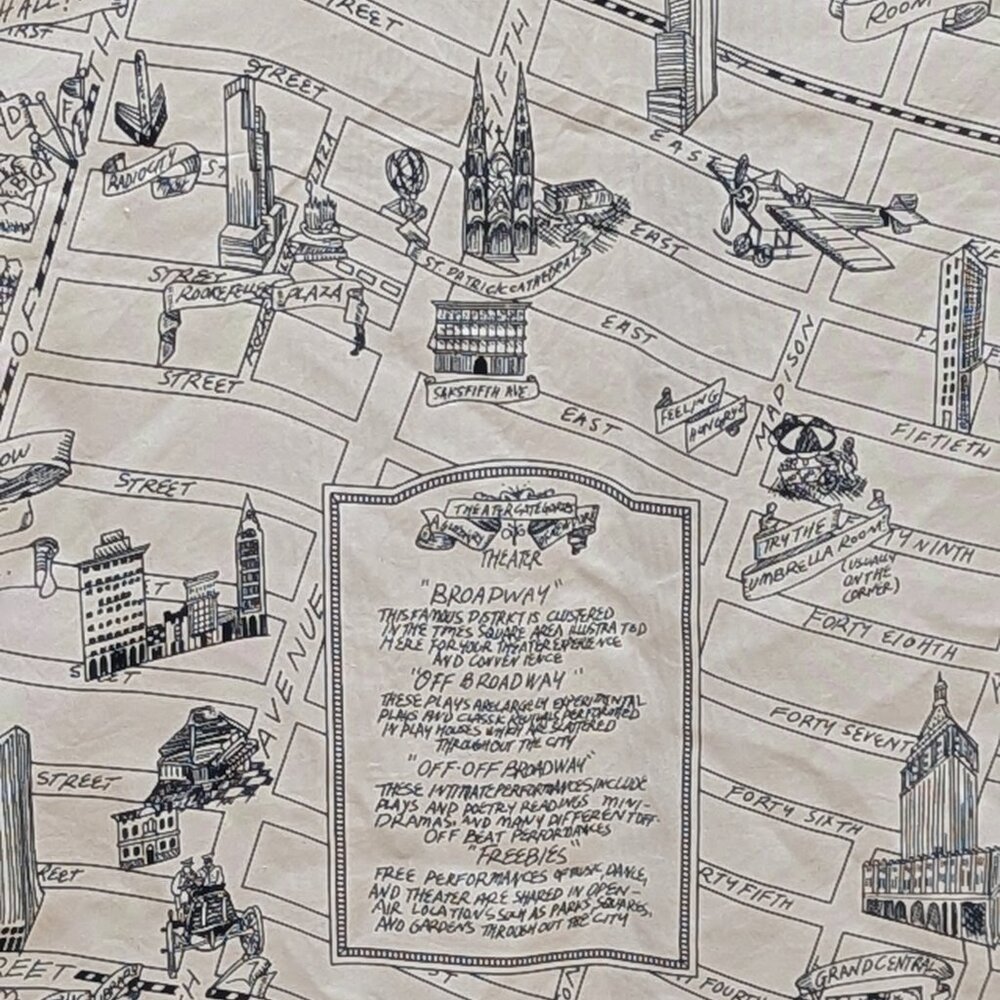 HALL!
STREET
FIFTH
ROOM
STREET
RADIO CITY
ST
PLAZA
EAST
EAST
ST. PATRICK CATHEDRAL
STREET
ROCKEFELLER PLAZA
EAST
MADISON
SAKS FIFTH AVE.
FEELING
HUNGRY?
STREET
EAST
FIFTIETH
OW
STREET
TRY THE
UMBRELLA ROOM
(USUALLY
ON THE
CORNER)
TY NINTH
FORTY EIGHTH
AVENUE
THEATER CATEGORIES
THEATER
"BROADWAY"
THIS FAMOUS DISTRICT IS CLUSTERED
IN THE TIMES SQUARE AREA ILLUSTRATED
HERE FOR YOUR THEATER EXPERIENCE
AND CONVENIENCE
"OFF BROADWAY"
THESE PLAYS ARE LARGELY EXPERIMENTAL
PLAYS AND CLASSIC REVIVALS PERFORMED
IN PLAY HOUSES WHICH ARE SCATTERED
THROUGHOUT THE CITY
"OFF-OFF BROADWAY"
THESE INTIMATE PERFORMANCES INCLUDE
PLAYS AND POETRY READINGS MINI-
DRAMAS, AND MANY DIFFERENT OFF-
OFF BEAT PERFORMANCES
"FREEBIES"
FREE PERFORMANCES OF MUSIC, DANCE,
AND THEATER ARE SHARED IN OPEN-
AIR LOCATIONS SUCH AS PARKS, SQUARES,
AND GARDENS THROUGHOUT THE CITY
FORTY SEVENT
STREET
FORTY SIXTH
REET
RTY FIFTH
REET
ST
GRAND CENTRAL
FOURT